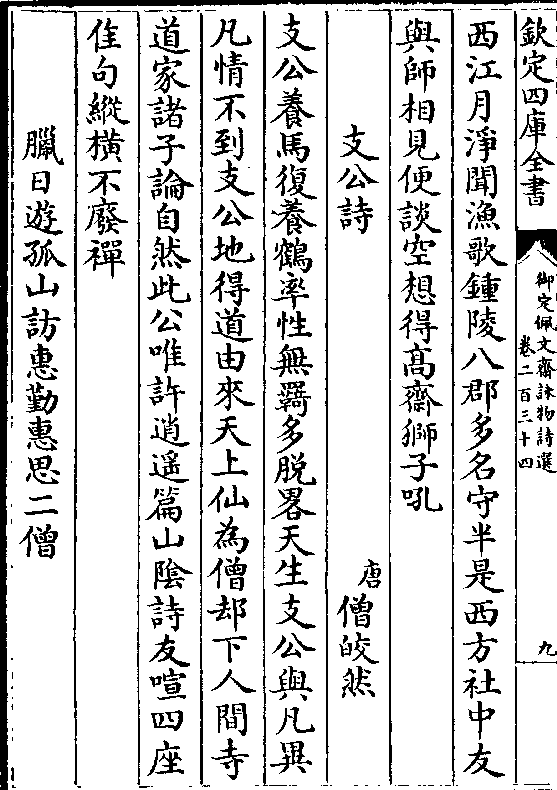 欽定四庫全書
御定佩文齋詠物詩選
卷二百三十四
九
西江月淨聞漁歌鍾陵八郡多名守半是西方社中友
與師相見便談空想得髙齋獅子吼
支公詩
唐
僧皎然
支公養馬復養鶴率性無羈多脫畧天生支公與凡異
凡情不到支公地得道由來天上仙為僧却下人間寺
道家諸子論自然此公唯許逍遥篇山陰詩友喧四座
佳句縱横不廢禪
臘日遊孤山訪惠勤惠思二僧